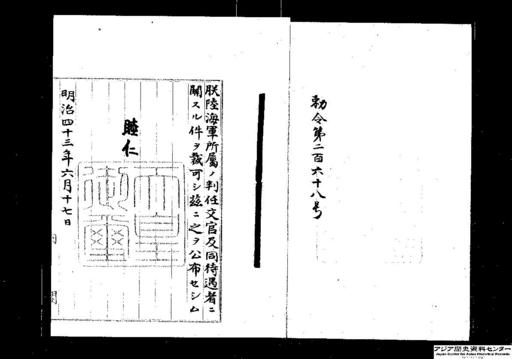 勅令第二百六十八号
朕陸海軍所屬ノ判任文官及同待遇者ニ
關スル件ヲ裁可シ玆ニ之ヲ公布セシム
睦仁
天皇御璽
明治四十三年六月十七日
アジア歴史資料センター
Japan Center for Asian Historical Records